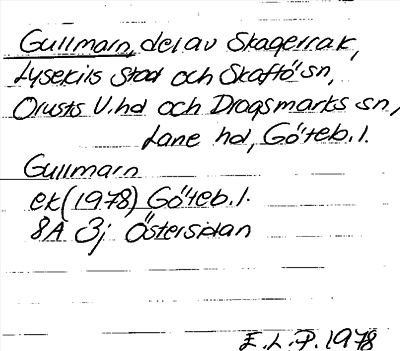 Gullmarn, del av Skagerrak,
Lysekils stad och Skaftö sn,
Orusts V.hd och Dragsmarks sn,
Lane hd, Göteb.l.
Gullmarn
ek (1978) Göteb.l.
8A 3j Östersidan
E.L.P. 1978